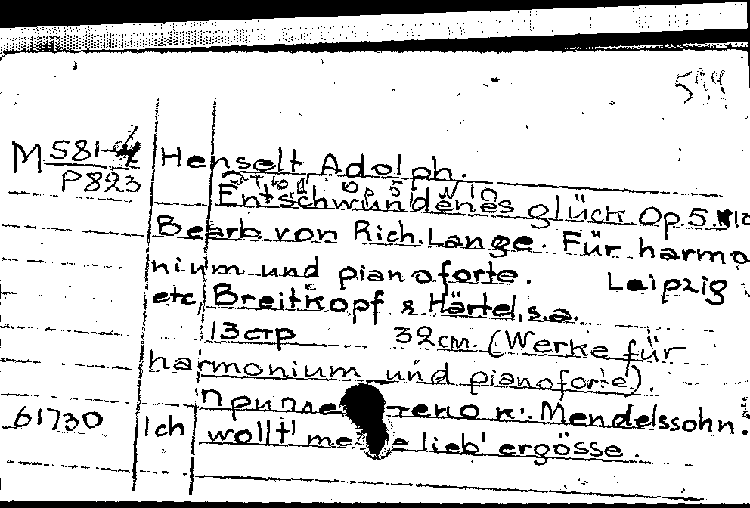 594
M 581-4 Henselt Adolph.
P823
Entschwundenes glück Op 5 N10
Bearb von Rich. Lange. Für harmo
nium und pianoforte. Leipzig
etc, Breitkopf & Härtel, s.a.
13 стр 32 cm. (Werke für
harmonium und pianoforte).
к: Mendelssohn.
61730 Ich wollt' lieb' ergösse.